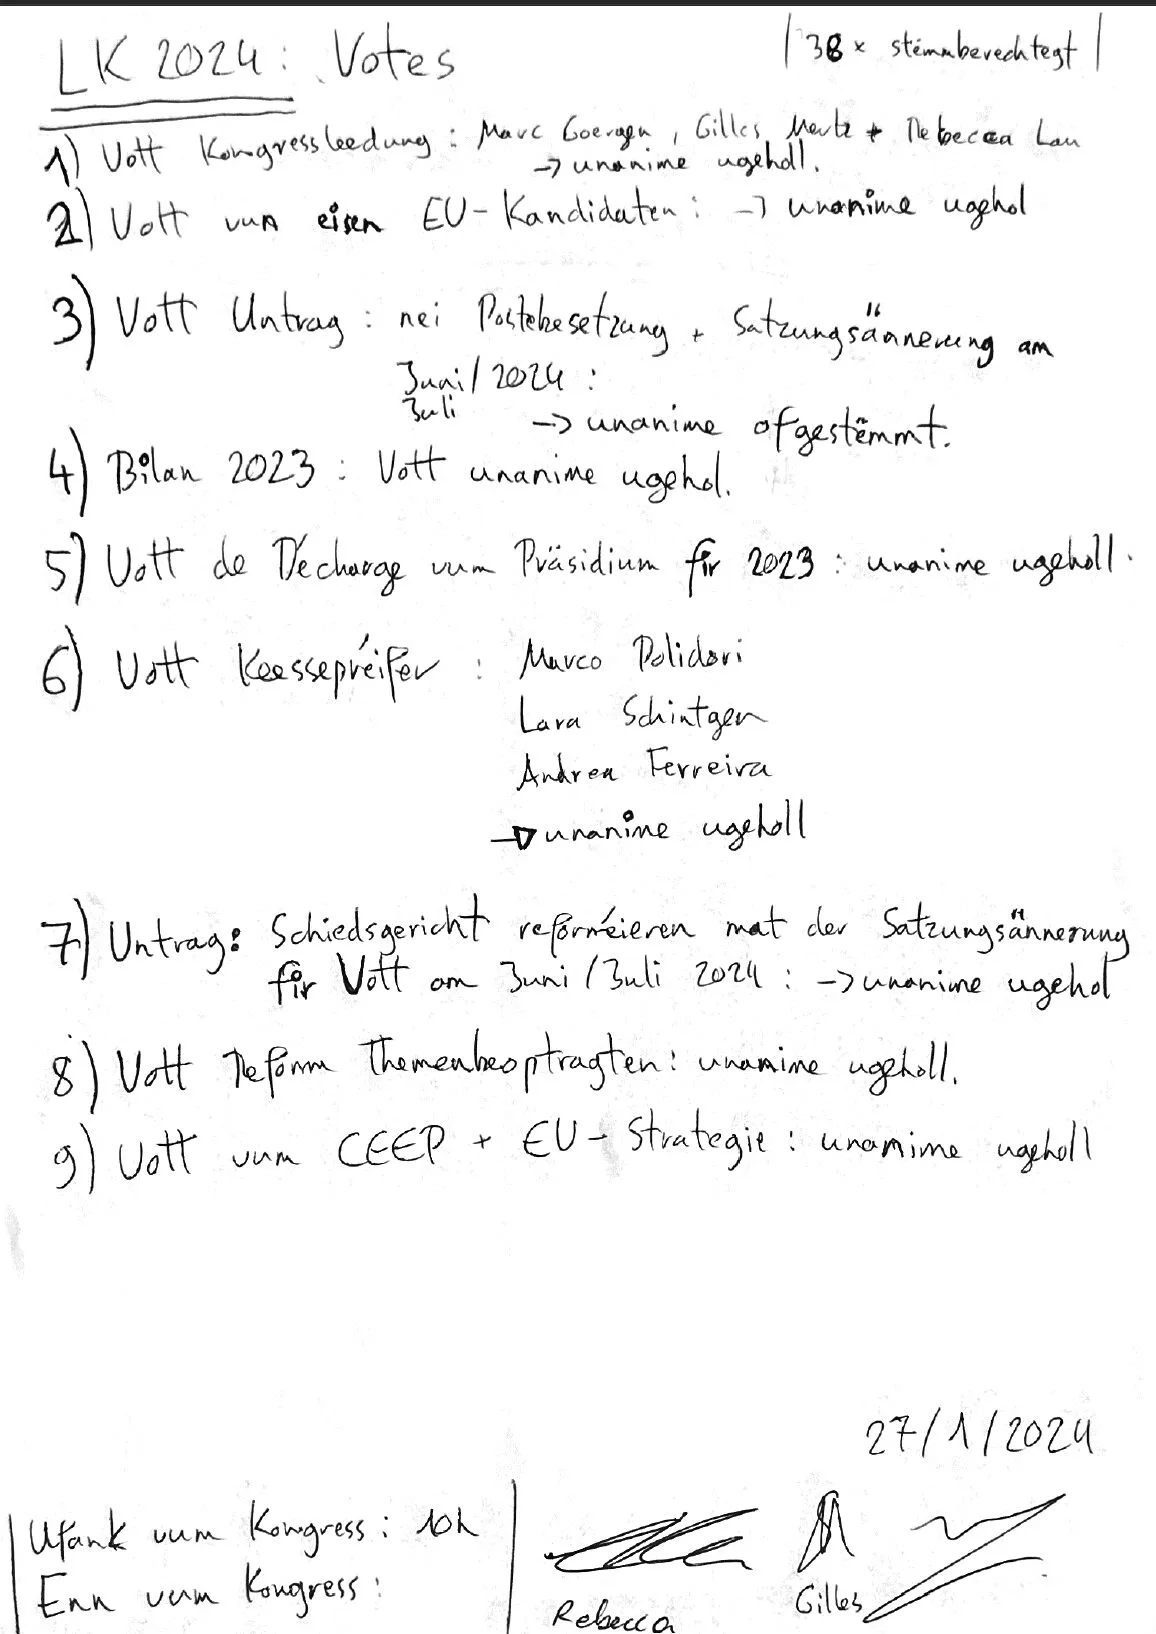 LK 2024 : Votes
38 x stëmmberechtegt
1) Vott Kongressleedung : Marc Goergen, Gilles Mertz + Rebecca Lau
-> unanime ugeholl.
2) Vott vun eisen EU-Kandidaten : -> unanime ugehol
3) Vott Untrag : nei Postebesetzung + Satzungsännerung am
Juni/2024 :
Juli
-> unanime ofgestëmmt.
4) Bilan 2023 : Vott unanime ugehol.
5) Vott de Décharge vum Präsidium fir 2023 : unanime ugeholl.
6) Vott Keessepréifer : Marco Polidori
Lara Schintgen
Andrea Ferreira
-> unanime ugeholl
7) Untrag: Schiedsgericht reforméieren mat der Satzungsännerung
fir Vott am Juni/Juli 2024 : -> unanime ugehol
8) Vott Reform Themenbeoptragten : unanime ugeholl.
9) Vott vum CEEP + EU-Strategie : unanime ugeholl
27/1/2024
Ufank vum Kongress : 10h
Enn vum Kongress :
Rebecca
Gilles